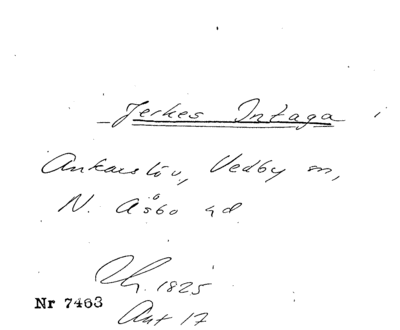 Jerkes Intaga
Ankarslöv, Vedby sn,
N. Åsbo hd
1825
Nr 7463
Avt 17